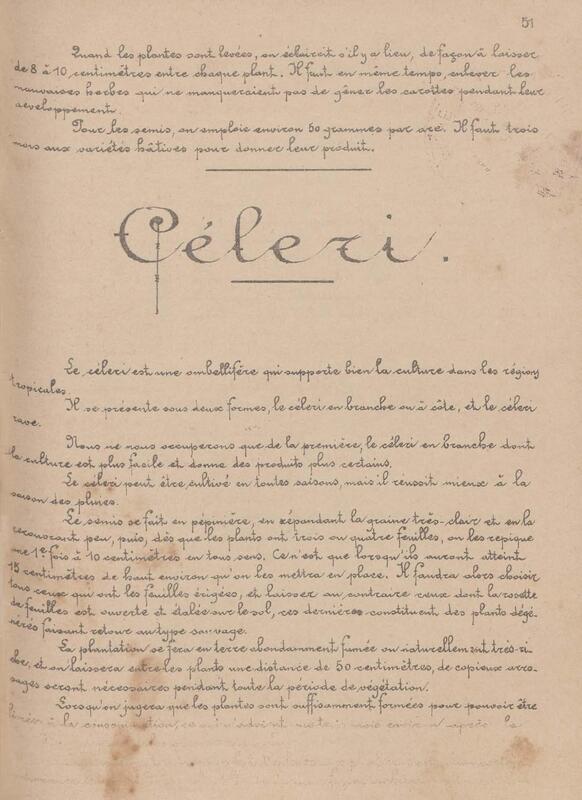 51
Quand les plantes sont levées, on éclaircit s'il y a lieu, de façon à laisser
de 8 à 10 centimètres entre chaque plant. Il faut en même temps, enlever les
mauvaises herbes qui ne manqueraient pas de gêner les carottes pendant leur
developpement.
Pour les semis, on emploie environ 50 grammes par are. Il faut trois
mois aux variétés hâtives pour donner leur produit.
Céleri.
Le céleri est une ombellifère qui supporte bien la culture dans les régions
tropicales.
Il se présente sous deux formes, le céleri en branche ou à côte, et le céleri
rave.
Nous ne nous occuperons que de la première, le céleri en branche dont
la culture est plus facile et donne des produits plus certains.
Le céleri peut être cultivé en toutes saisons, mais il réussit mieux à la
saison des pluies.
Le semis se fait en pépinière, en répandant la graine très-clair et en la
recouvrant peu, puis, dès que les plants ont trois ou quatre feuilles, on les repique
une 1e fois à 10 centimètres en tous sens. Ce n'est que lorsqu'ils auront atteint
15 centimètres de haut environ qu'on les mettra en place. Il faudra alors choisir
tous ceux qui ont les feuilles érigées, et laisser au contraire ceux dont la rosette
de feuilles est ouverte et étalée sur le sol, ces dernières constituent des plants dégé-
nérés faisant retour au type sauvage.
La plantation se fera en terre abondamment fumée ou naturellement très-ri-
che, et on laissera entre les plants une distance de 50 centimètres, de copieux arro-
sages seront nécessaires pendant toute la période de végétation.
Lorsqu'on jugera que les plantes sont suffisamment formées pour pouvoir être
à la consommation, ce qui advient